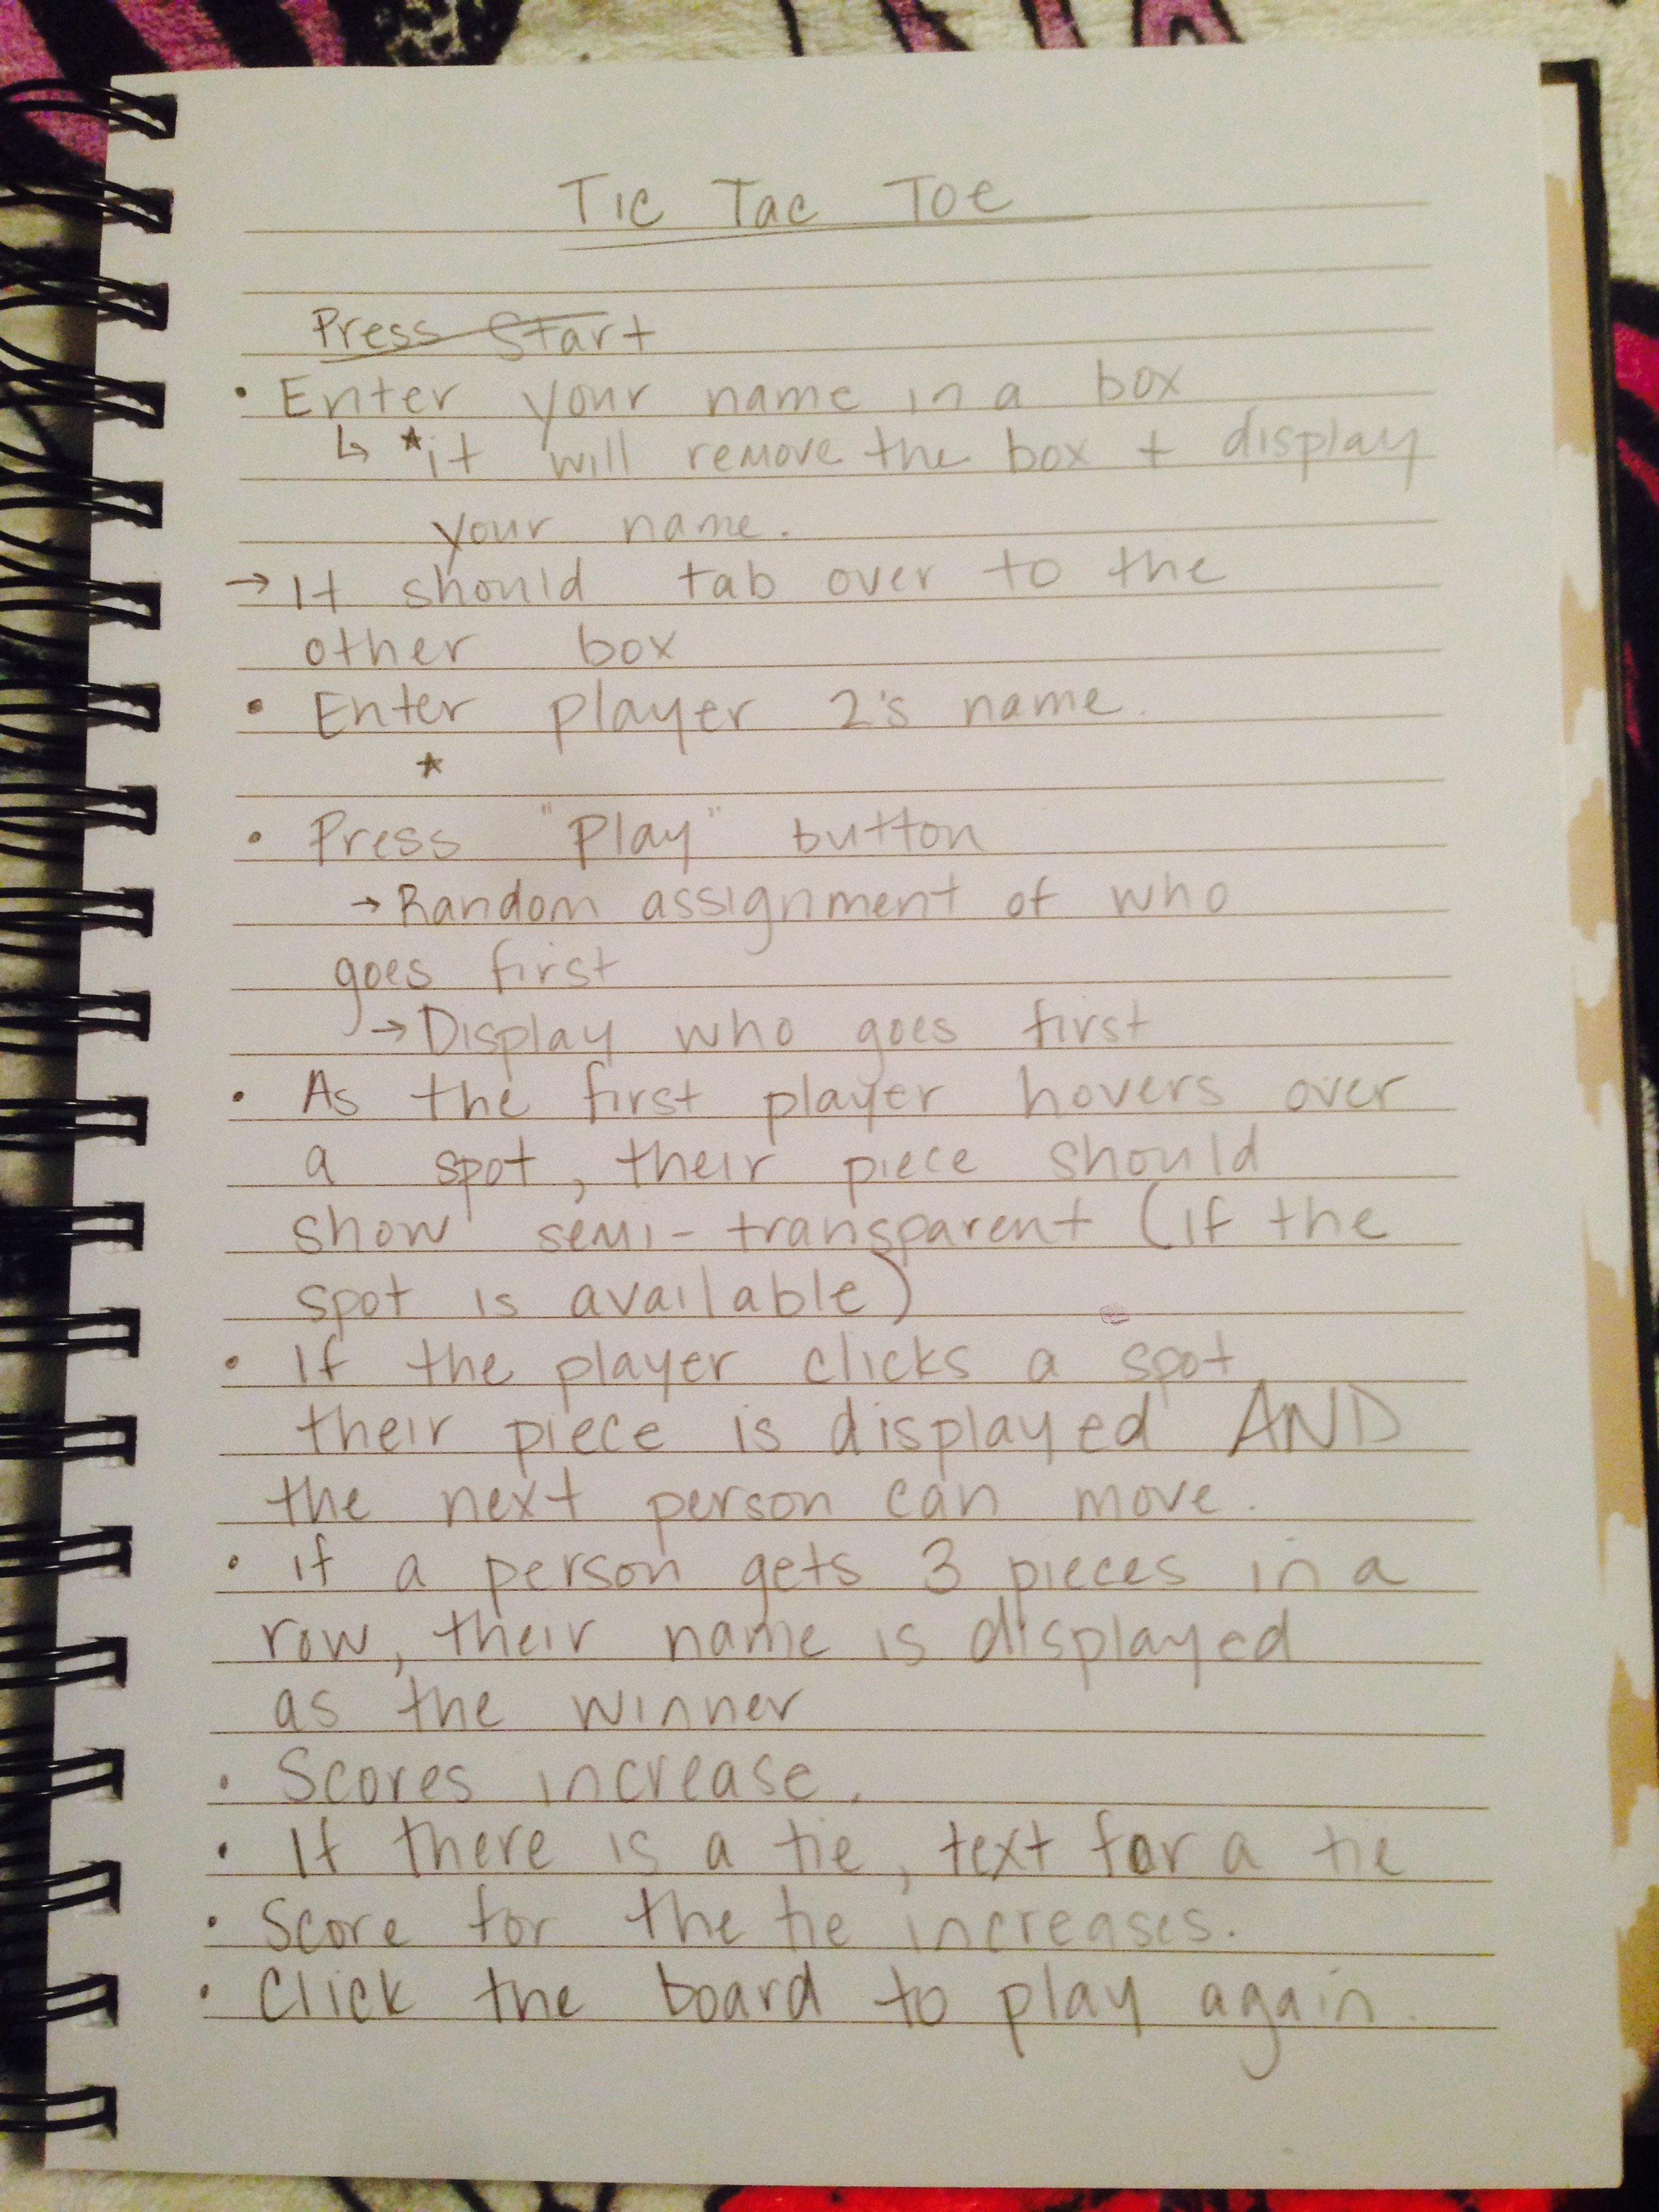 Tic Tac Toe
Press Start
• Enter your name in a box
↳ *it will remove the box + display
your name.
→ It should tab over to the
other box
• Enter player 2's name.
*
• Press "Play" button
→ Random assignment of who
goes first
→ Display who goes first
• As the first player hovers over
a spot, their piece should
show semi-transparent (if the
spot is available)
• If the player clicks a spot
their piece is displayed AND
the next person can move.
• if a person gets 3 pieces in a
row, their name is displayed
as the winner
• Scores increase.
• If there is a tie, text for a tie
• Score for the tie increases.
• Click the board to play again.